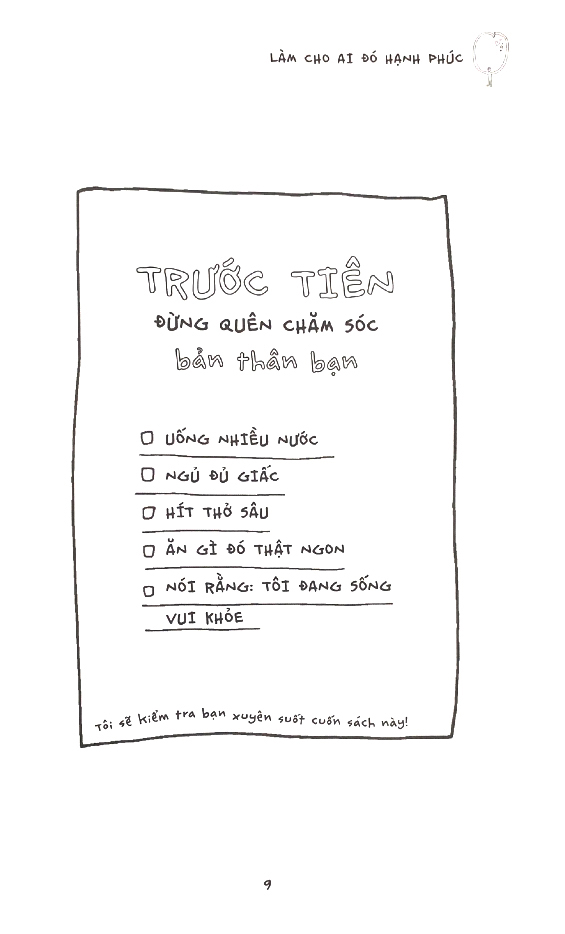 LÀM CHO AI ĐÓ HẠNH PHÚC
TRƯỚC TIÊN
ĐỪNG QUÊN CHĂM SÓC
bản thân bạn
UỐNG NHIỀU NƯỚC
NGỦ ĐỦ GIẤC
HÍT THỞ SÂU
ĂN GÌ ĐÓ THẬT NGON
NÓI RẰNG: TÔI ĐANG SỐNG
VUI KHỎE
Tôi sẽ kiểm tra bạn xuyên suốt cuốn sách này!
9